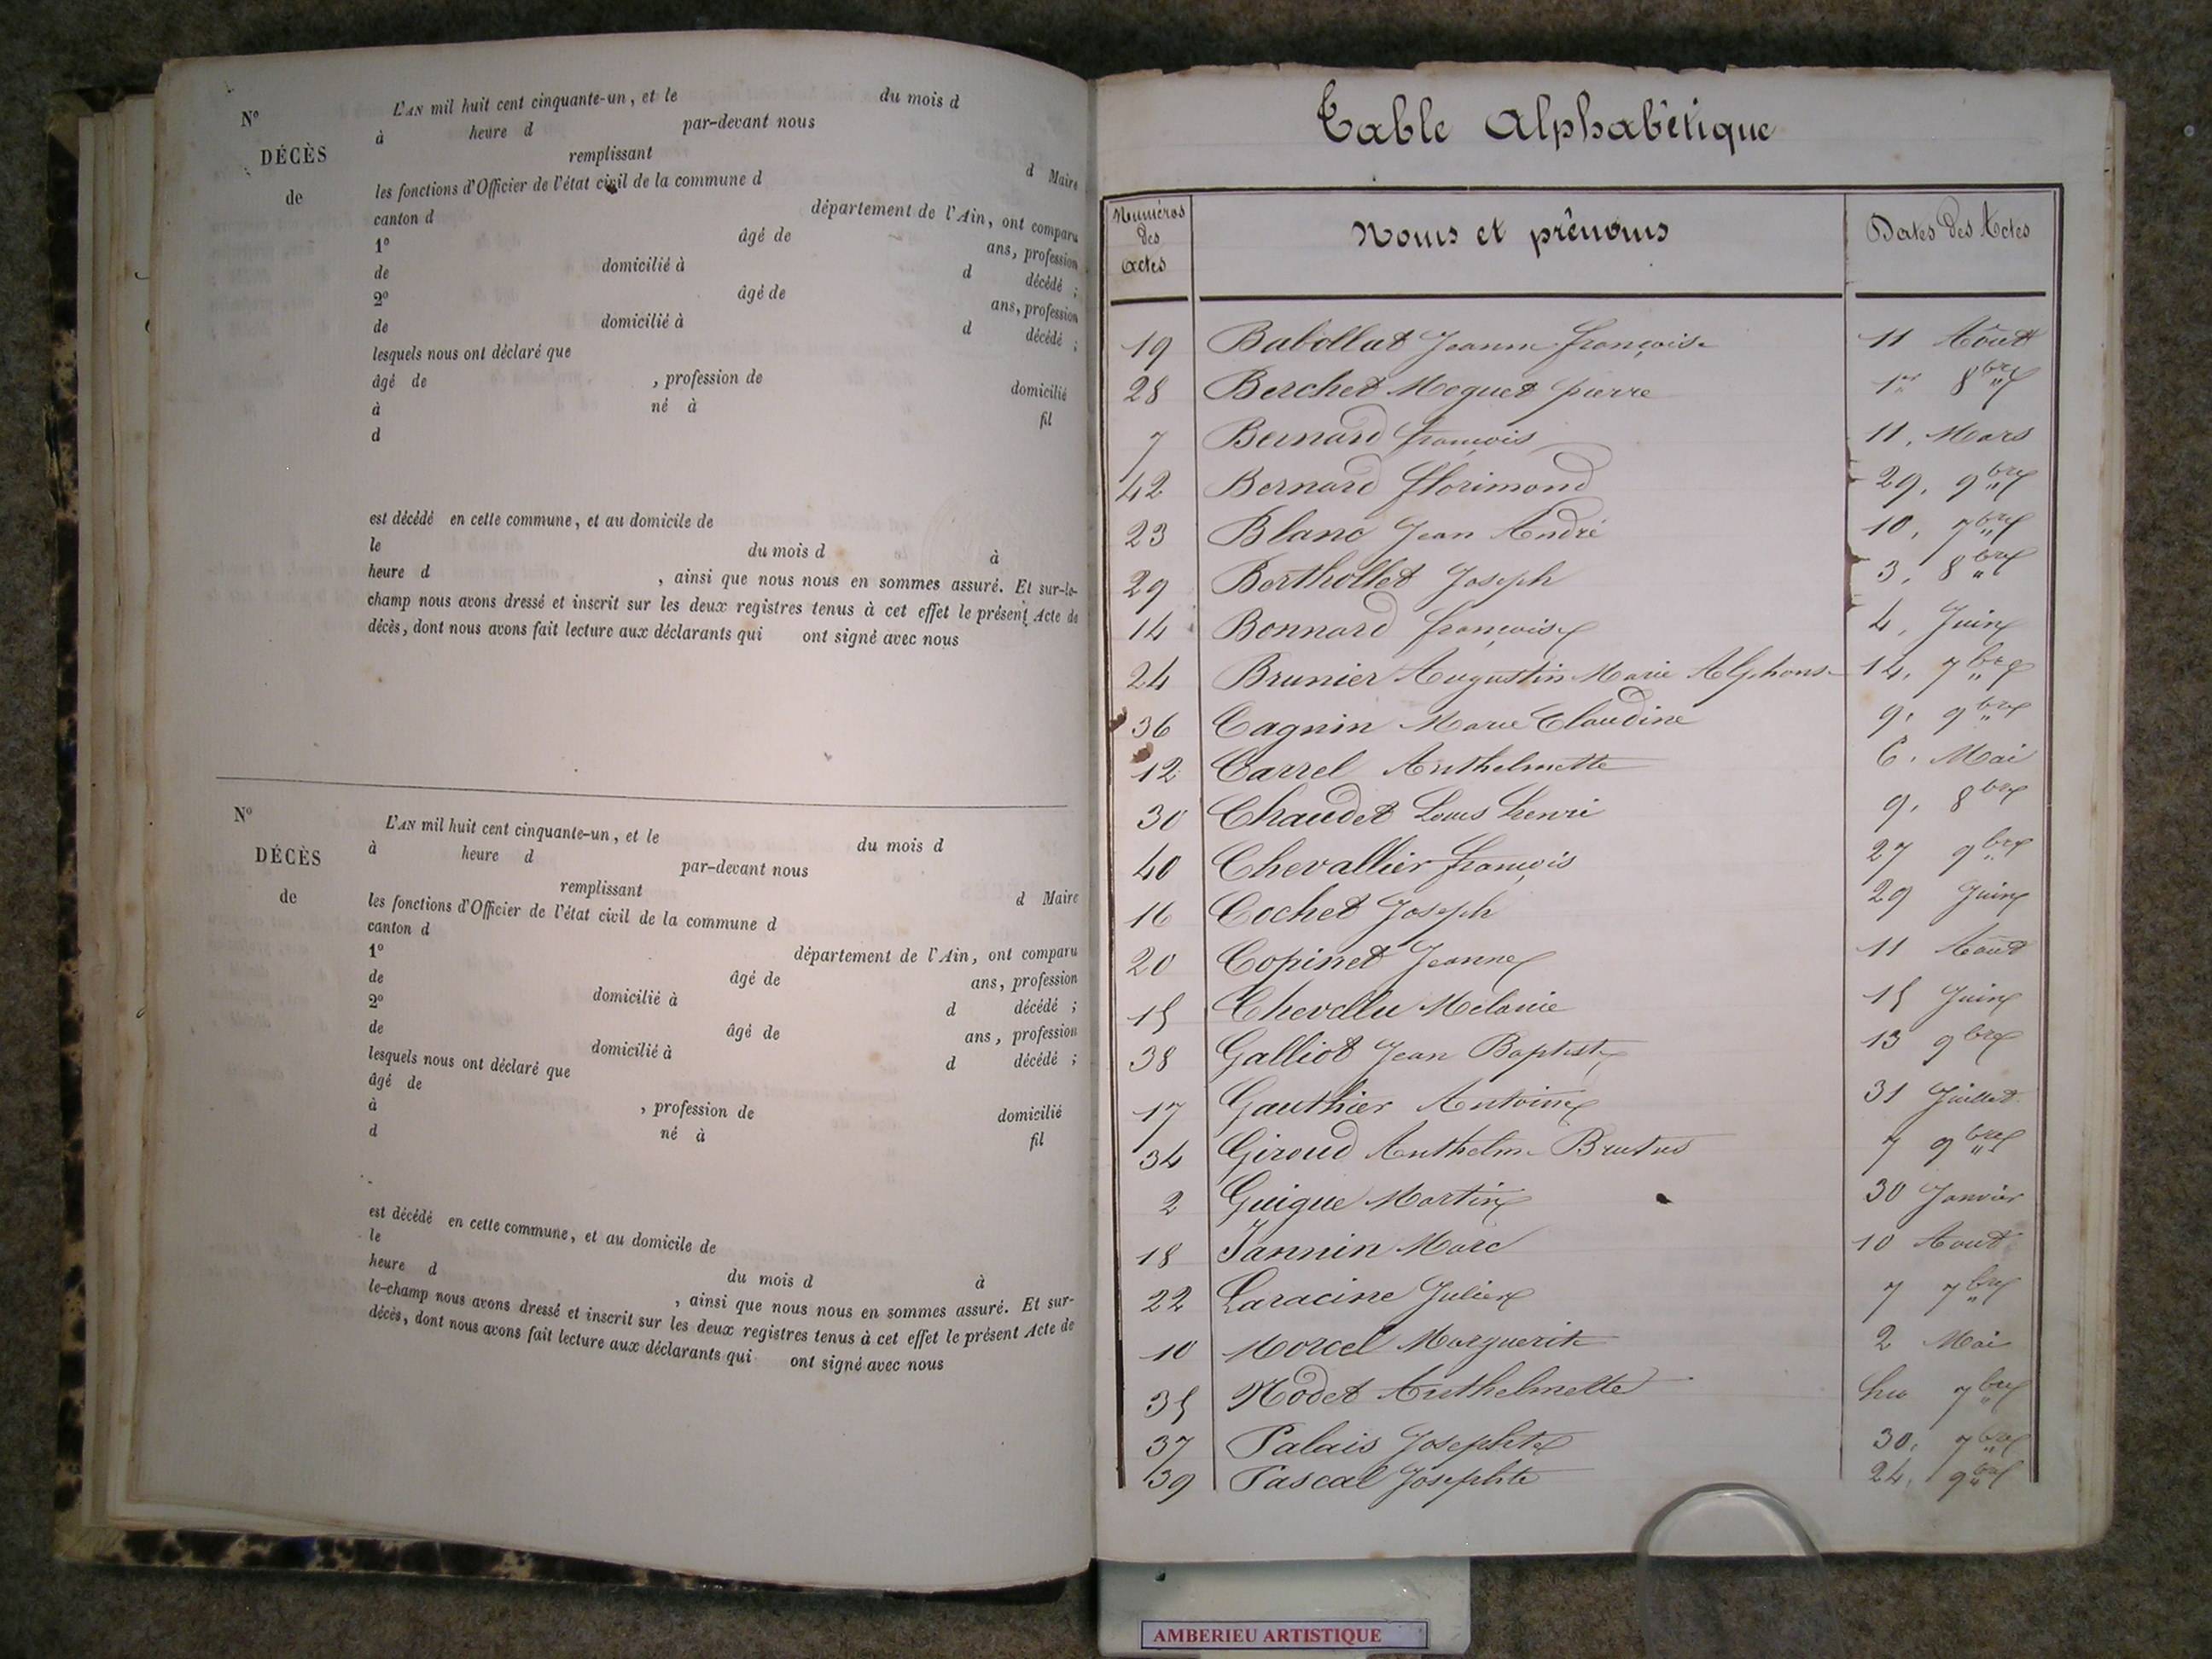 Nº
L'AN mil huit cent cinquante-un, et le du mois d
à heure d par-devant nous
DÉCÈS
remplissant d Maire
de
les fonctions d'Officier de l'état civil de la commune d
canton d département de l'Ain, ont comparu
1º âgé de ans, profession
de domicilié à d décédé ;
2º âgé de ans, profession
de domicilié à d décédé ;
lesquels nous ont déclaré que
âgé de , profession de domicilié
à né à fil
d
est décédé en cette commune, et au domicile de
le du mois d à
heure d , ainsi que nous nous en sommes assuré. Et sur-le-
champ nous avons dressé et inscrit sur les deux registres tenus à cet effet le présent Acte de
décès, dont nous avons fait lecture aux déclarants qui ont signé avec nous
Nº
L'AN mil huit cent cinquante-un, et le du mois d
à heure d par-devant nous
DÉCÈS
remplissant d Maire
de
les fonctions d'Officier de l'état civil de la commune d
canton d département de l'Ain, ont comparu
1º âgé de ans, profession
de domicilié à d décédé ;
2º âgé de ans, profession
de domicilié à d décédé ;
lesquels nous ont déclaré que
âgé de , profession de domicilié
à né à fil
d
est décédé en cette commune, et au domicile de
le du mois d à
heure d , ainsi que nous nous en sommes assuré. Et sur-
le-champ nous avons dressé et inscrit sur les deux registres tenus à cet effet le présent Acte de
décès, dont nous avons fait lecture aux déclarants qui ont signé avec nous
Table Alphabétique
Numéros des actes Noms et prénoms Dates des Actes
19 Babollat Jeanne françoise 11 Août
28 Berchet Moquet pierre 1er 8bre
7 Bernard françois 11, Mars
42 Bernard florimond 29, 9bre
23 Blanc Jean André 10, 7bre
29 Berthollet Joseph 3, 8bre
14 Bonnard françoise 4, Juin
24 Brunier Augustin Marie Alphonse 14, 7bre
36 Cagnin Marie Claudine 9, 9bre
12 Carrel Anthelmette 6, Mai
30 Chaudet Louis henri 9, 8bre
40 Chevallier françois 27 9bre
16 Cochet Joseph 29 Juin
20 Copinet Jeanne 11 Août
15 Chevallu Mélanie 15 Juin
38 Galliot Jean Baptiste 13 9bre
17 Gauthier Antoine 31 Juillet
34 Giroud Anthelme Brutus 7 9bre
2 Guigue Martin 30 Janvier
18 Jannin Marc 10 Aout
22 Laracine Julien 7 7bre
10 Morcel Marguerite 2 Mai
35 Nodet Anthelmette 7bre
37 Palais Josephte 30, 7bre
39 Pascal Josephte 24, 9bre
AMBERIEU ARTISTIQUE